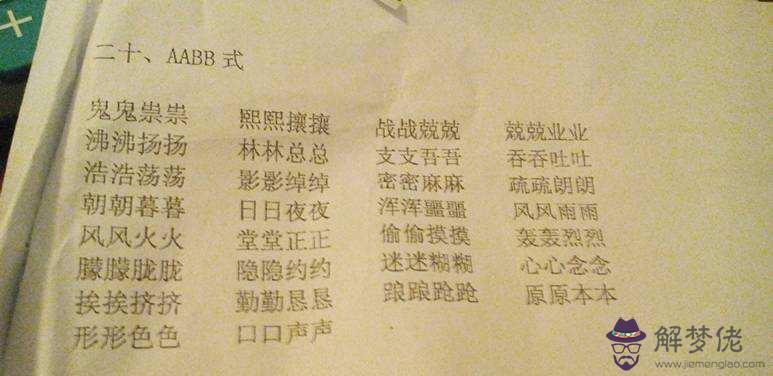 二十、AABB 式
鬼鬼祟祟 熙熙攘攘 战战兢兢 兢兢业业
沸沸扬扬 林林总总 支支吾吾 吞吞吐吐
浩浩荡荡 影影绰绰 密密麻麻 疏疏朗朗
朝朝暮暮 日日夜夜 浑浑噩噩 风风雨雨
风风火火 堂堂正正 偷偷摸摸 轰轰烈烈
朦朦胧胧 隐隐约约 迷迷糊糊 心心念念
挨挨挤挤 勤勤恳恳 踉踉跄跄 原原本本
形形色色 口口声声
解梦佬
www.jiemenglao.com